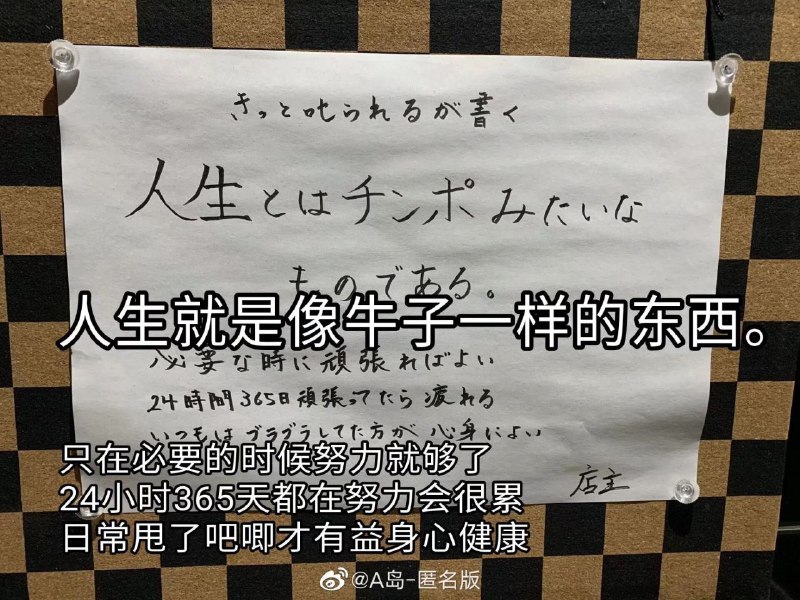 きっと叱られるが書く
人生とはチンポみたいな
ものである。
人生就是像牛子一样的东西。
必要な時に頑張ればよい
24時間365日頑張ってたら疲れる
いつもはブラブラしてた方が心身によい
只在必要的时候努力就够了
店主
24小时365天都在努力会很累
日常甩了吧唧才有益身心健康
@A岛-匿名版